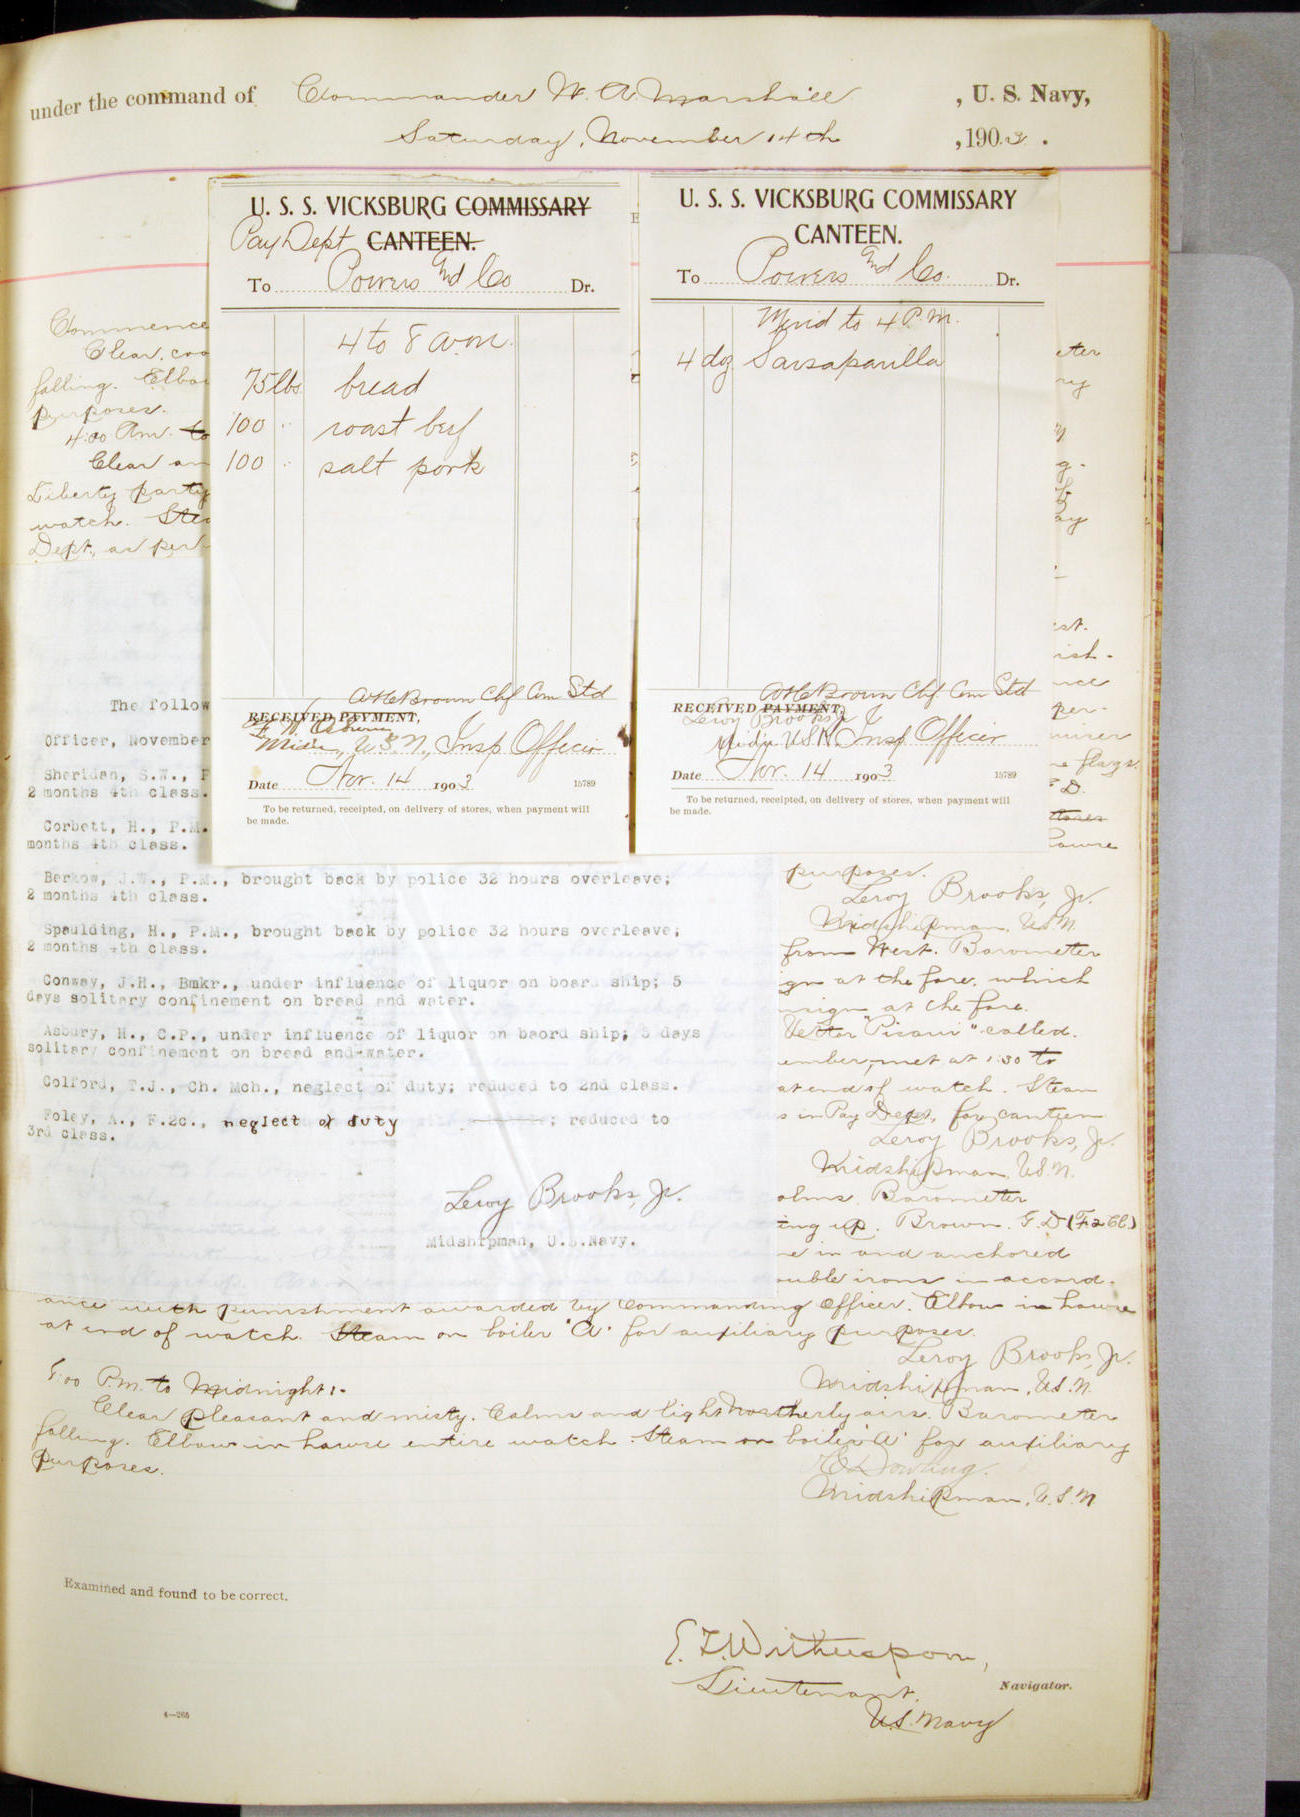 under the command of Commander W. A. Marshall , U. S. Navy,
Saturday, November 14th , 1903 .
U. S. S. VICKSBURG COMMISSARY
Pay Dept CANTEEN.
To Powers and Co Dr.
4 to 8 a.m.
75 lbs bread
100 " roast beef
100 " salt pork
Brown Chf Com Std
RECEIVED PAYMENT,
Midn, U.S.N., Insp Officer
Date Nov. 14 1903
15789
To be returned, receipted, on delivery of stores, when payment will
be made.
U. S. S. VICKSBURG COMMISSARY
CANTEEN.
To Powers and Co. Dr.
Merid to 4 P.M.
4 dz Sarsaparilla
Brown Chf Com Std
RECEIVED PAYMENT,
Leroy Brooks Jr
Midn USN. Insp Officer
Date Nov. 14 1903
15789
To be returned, receipted, on delivery of stores, when payment will
be made.
Commence
Clear, coo
falling. Elbow
purposes.
4:00 Am. to
Clear an
Liberty party
watch. Stea
Dept, as per
eter
ry
g.
ay
est.
ish-
nce
per-
uiser
e flags.
D.
stores
hawse
The follow
Officer, November
Sheridan, S.W., F
2 months 4th class.
Corbett, H., P.M.
months 4th class.
Berkow, J.W., P.M., brought back by police 32 hours overleave;
2 months 4th class.
Spaulding, H., P.M., brought back by police 32 hours overleave;
2 months 4th class.
Conway, J.H., Bmkr., under influence of liquor on board ship; 5
days solitary confinement on bread and water.
Asbury, H., C.P., under influence of liquor on baord ship; 5 days
solitary confinement on bread and water.
Colford, T.J., Ch. Mch., neglect of duty; reduced to 2nd class.
Foley, A., F.2c., neglect of duty ; reduced to
3rd class.
Leroy Brooks, Jr.
Midshipman, U.S.Navy.
purposes.
Leroy Brooks, Jr.
Midshipman, U.S.N.
from West. Barometer
ign at the fore, which
nsign at the fore.
Vettor "Pisani" called.
ember, met at 1:30 to
at end of watch. Steam
s in Pay Dept, for canteen
Leroy Brooks, Jr.
Midshipman, U.S.N.
alms. Barometer
ing up. Brown. G.D (F2Cl)
me in and anchored
ouble irons in accord-
ance with punishment awarded by Commanding Officer. Elbow in hawse
at end of watch. Steam on boiler "A" for auxiliary purposes.
Leroy Brooks, Jr.
Midshipman, U.S.N.
8:00 P.m. to Midnight:-
Clear pleasant and misty. Calms and light Northerly airs. Barometer
falling. Elbow in hawse entire watch. Steam on boiler "A" for auxiliary
purposes.
Dowling.
Midshipman, U.S.N
Examined and found to be correct.
E. T. Witherspoon,
Lieutenant, Navigator.
U.S. Navy
6—265